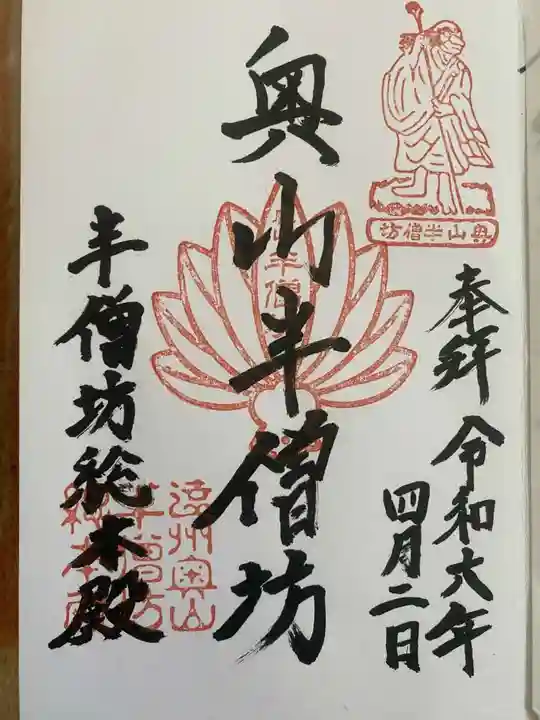 奥山半僧坊
奉拝
令和六年
四月二日
奥山半僧坊
半僧坊総本殿
遠州奥山
半僧坊